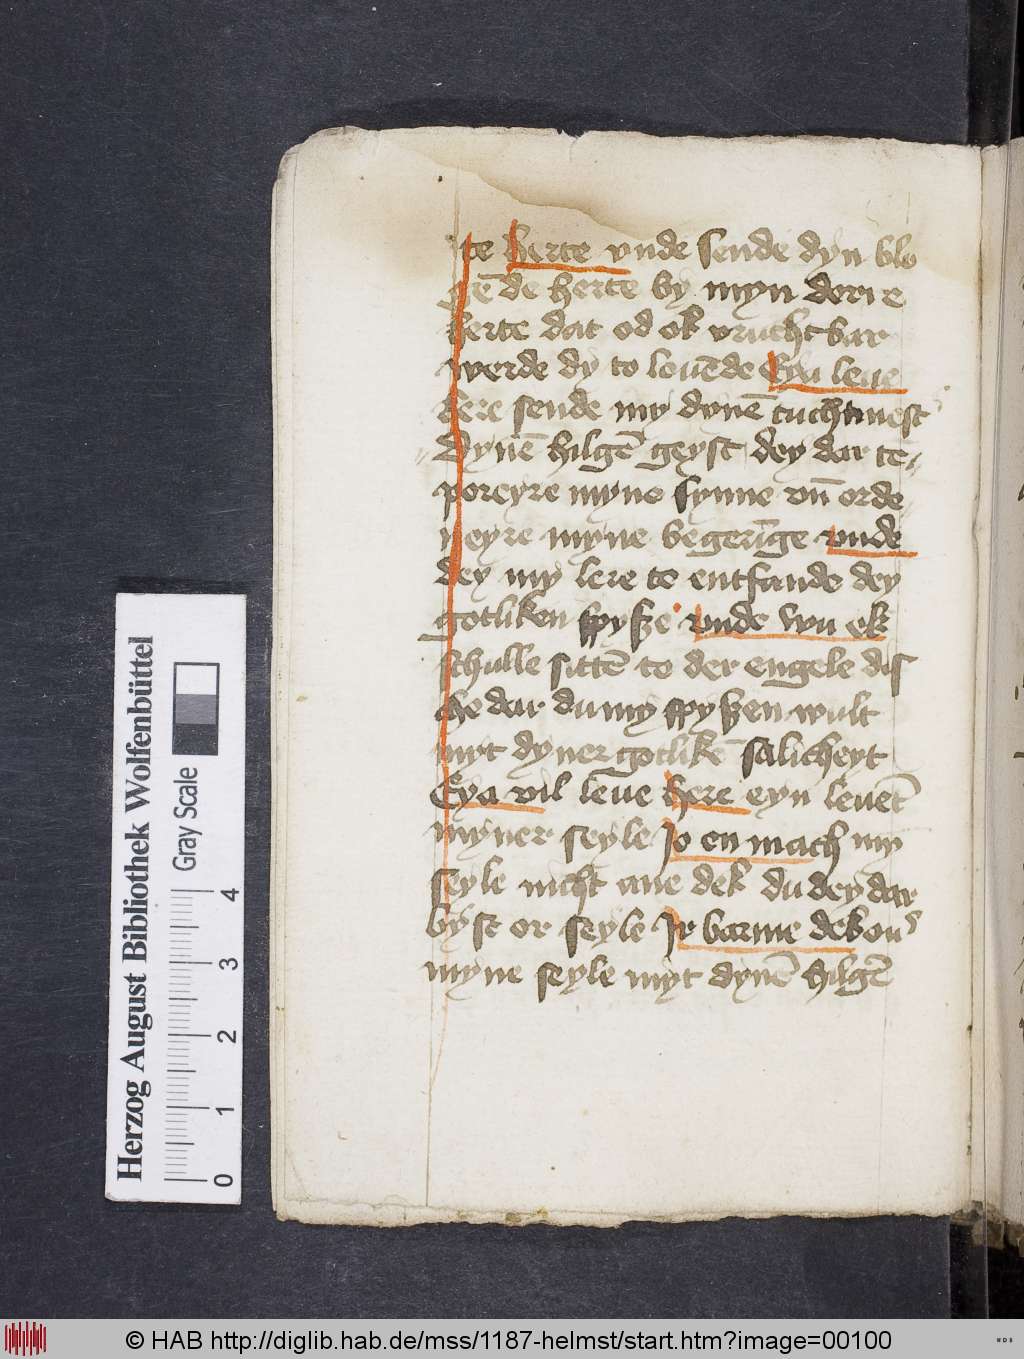 te herte vnde sende dyn blo
gē de herte by myn dorre
herte dat od ok vrucht bar
werde dy to louēde Eya leue
here sende my dynē tuchtmest
Dynē hilgē geyst dey dar te
poreyre myne synne vn̄ orde
neyre myne begerīge vnde
dey my lere to entfande dey
gotliken spysze vnde wu ek
schulle sittē to der engele dis
che dar du my spyszen wult
myt dyner gotlikē salicheyt
Eya vil leue here eyn leuēt
myner seyle Jo en mach my
seyle nicht ane dek du dey dar
byst or seyle Jr barme dek ou
myne seyle myt dynē hilgē
Herzog August Bibliothek Wolfenbüttel
Gray Scale
0 1 2 3 4
© HAB http://diglib.hab.de/mss/1187-helmst/start.htm?image=00100